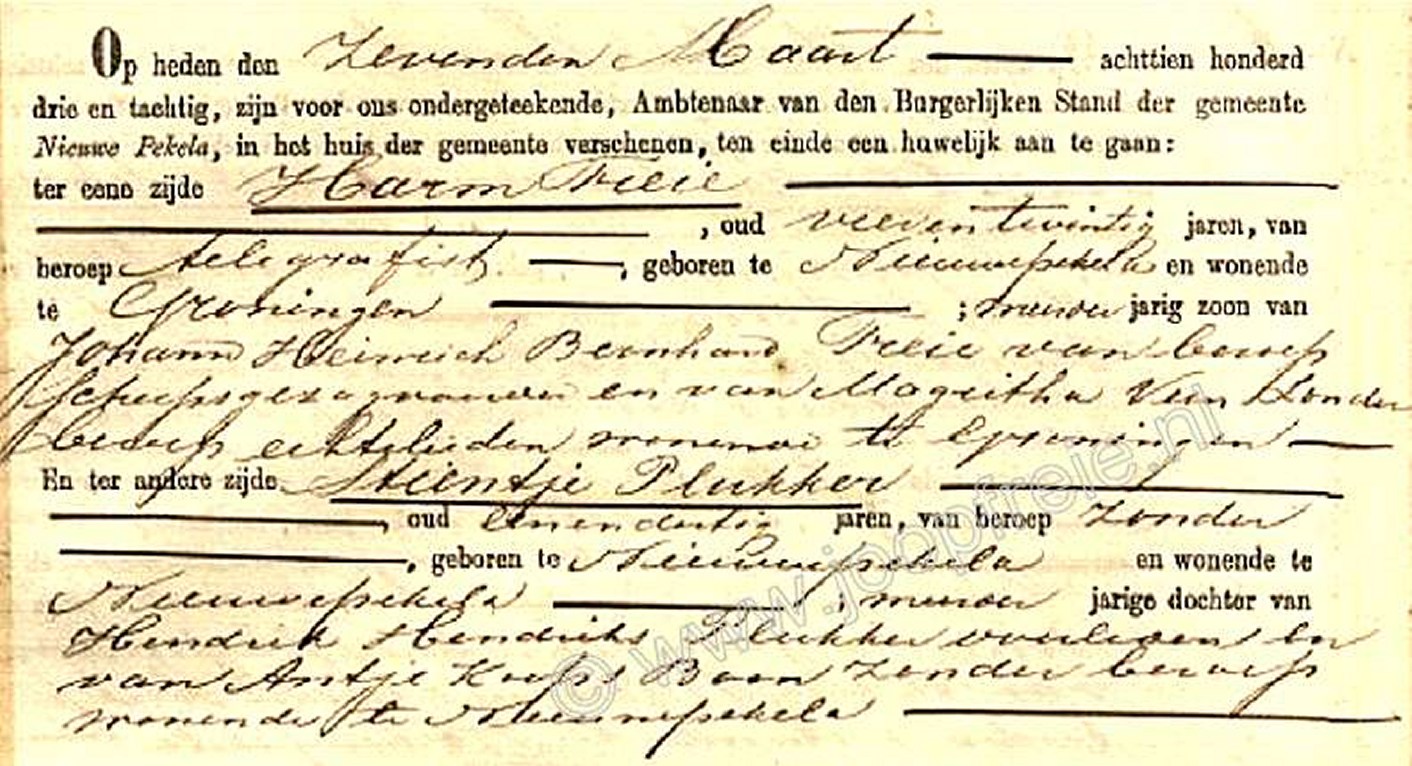 Op heden den Zevenden Maart achttien honderd
drie en tachtig, zijn voor ons ondergeteekende, Ambtenaar van den Burgerlijken Stand der gemeente
Nieuwe Pekela, in het huis der gemeente verschenen, ten einde een huwelijk aan te gaan:
ter eene zijde Harm Freie
, oud vierentwintig jaren, van
beroep telegrafist, geboren te Nieuwepekela en wonende
te Groningen ; meerder jarig zoon van
Johann Heinrich Bernhard Freie van beroep
Scheepsgezagvoerder en van Magritha Veen Zonder
beroep echtelieden wonende te Groningen
En ter andere zijde Stientje Plukker
, oud eenendertig jaren, van beroep zonder
, geboren te Nieuwepekela en wonende te
Nieuwepekela ; meerder jarige dochter van
Hendrik Hendriks Plukker overleden en
van Antje Boon Zonder beroep
wonende te Nieuwepekela
© www.joopfreie.nl